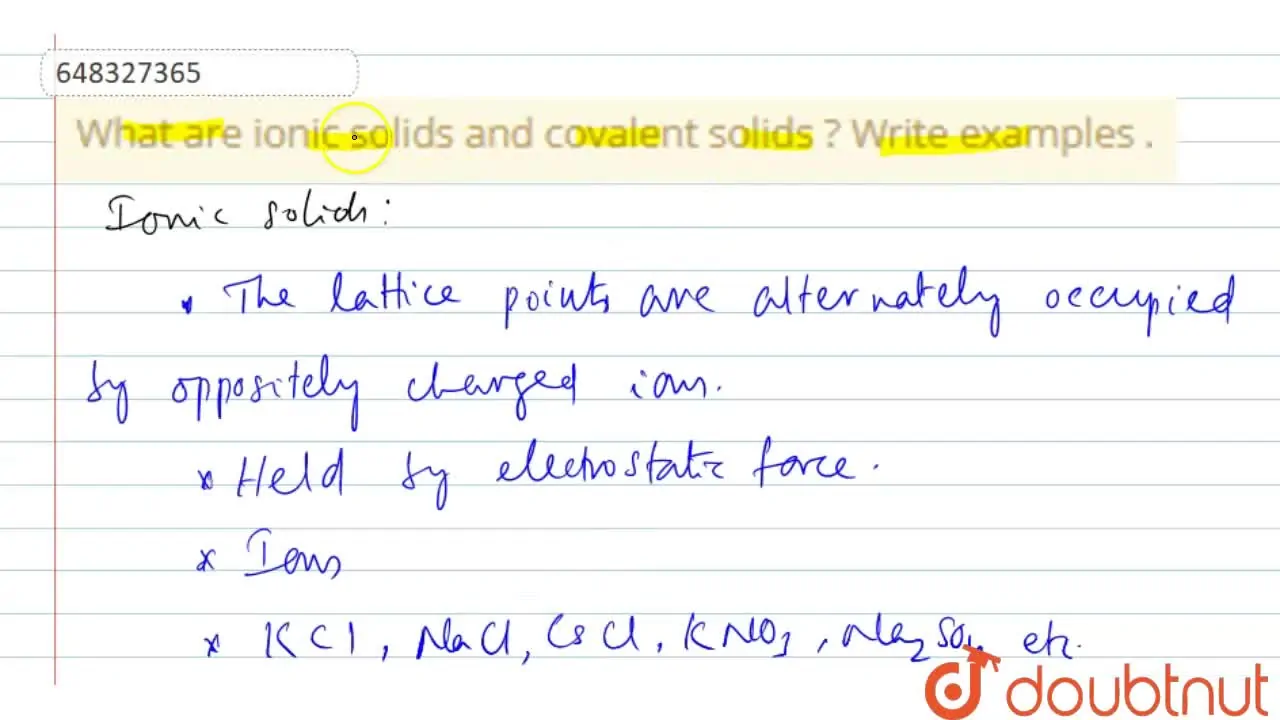 648327365
What are ionic solids and covalent solids ? Write examples .
Ionic solids:
• The lattice points are alternately occupied
by oppositely charged ions.
× Held by electrostatic force.
× Ions
× KCl, NaCl, CsCl, KNO3, Na2SO4 etc.
doubtnut